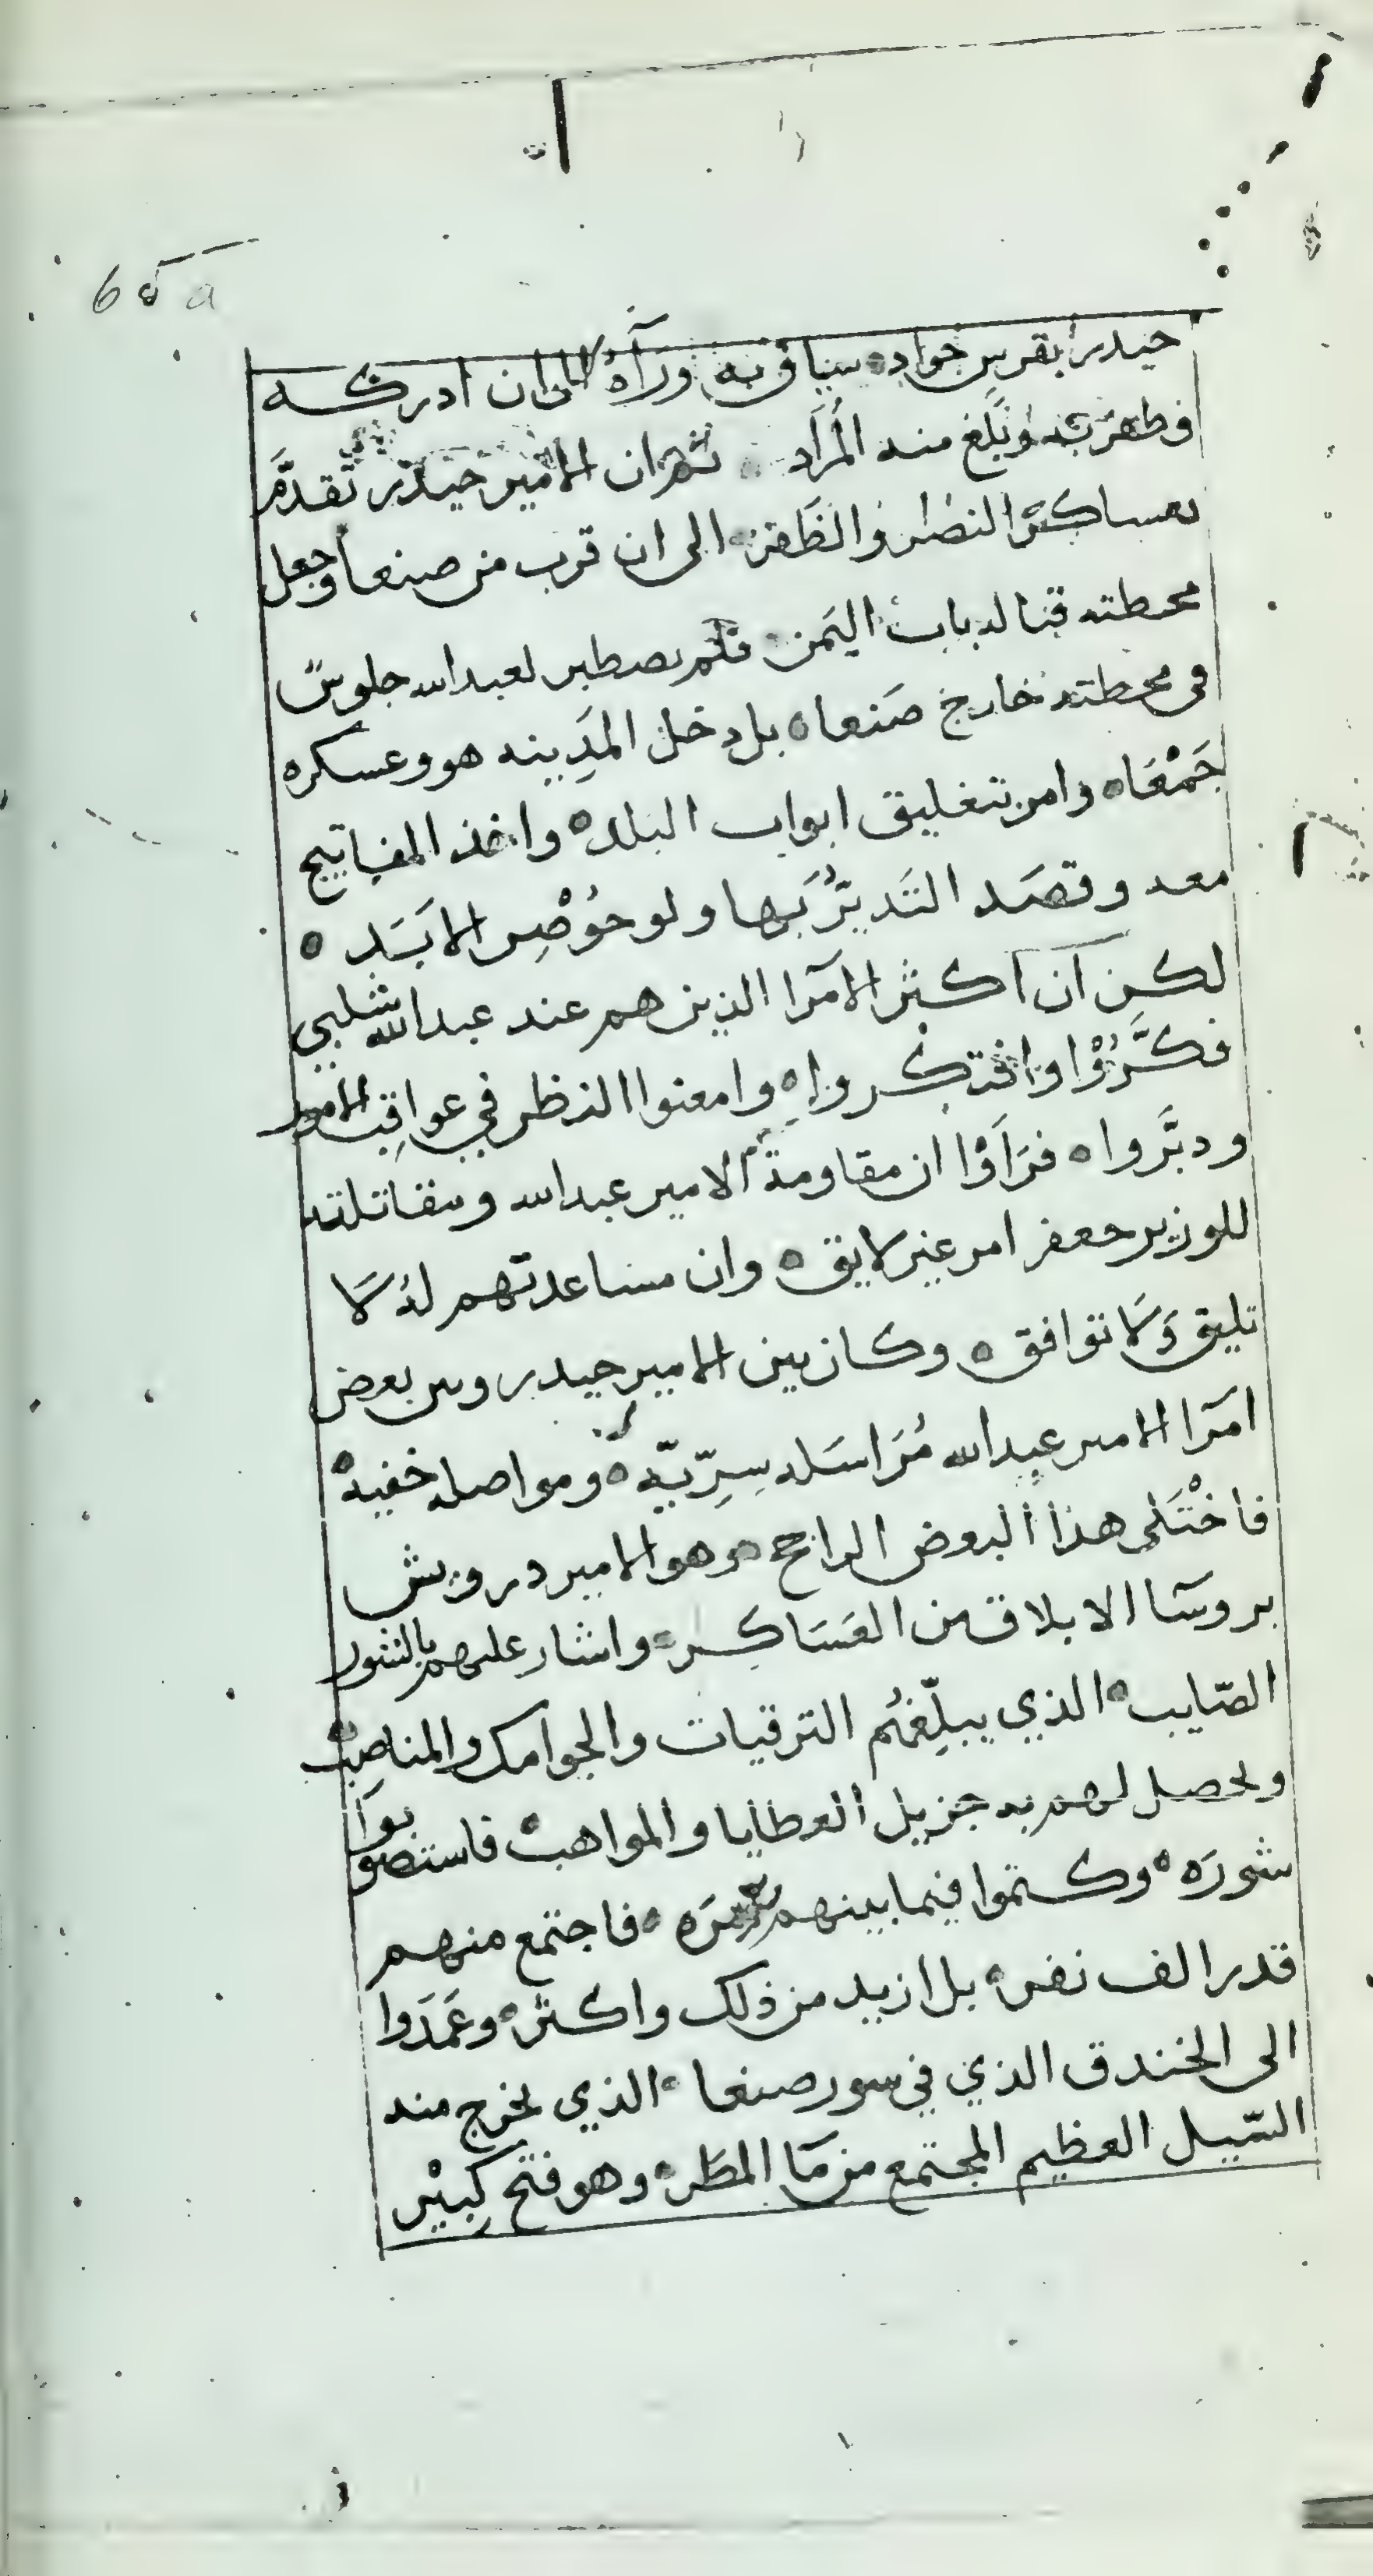 65 a
حيدر بقرس جواده سياق به ورآه الى ان ادركه
وظهر به وبلغ منه المُرَاد ه ثم ان الامير حيدر تقدَّمَ
بعساكر النصر والظَفر ه الى ان قرب من صنعا وجعل
محطته قبالة باب اليَمن ه فلم يصطبر لعبدالله جلوسٌ
في محطته خارج صَنعا ه بل دخل المَدِينه هو وعسكره
جَمْعَا ه وامر بتغليق ابواب البلد ه واخذ المفاتيح
معه وقصَد التَديُّرَ بها ولو حُوْصِر الابَد ه
لكن ان اكثر الامرا الذين هم عند عبدالله شلبي
فكَّرُوْا وافتكروا ه وامعنوا النظر في عواقِب الامور
ودبَّروا ه فرَاَوْا ان مقاومة الامير عبدالله ومقاتلته
للوزير جعفر امر غير لايق ه وان مساعدتهم لهُ لا
تليق وَلا توافق ه وكان بين الامير حيدر وبين بعض
امَرا الامير عبدالله مُرَاسَله سِرِّيّه ه ومواصله خفيه
فاخْتَلى هذا البعض الراجح ه وهو الامير درويش
بروسَا الابلاق من العَسَاكِر ه واشار عليهم بالشور
الصّايب ه الذي يبلّغهُم الترقيات والجوامك والمناصِب
ويحصل لهم به جزيل العطايا والمواهب ه فاستصوبوا
شورَه ه وكتموا فيما بينهم سرَه ه فاجتمع منهم
قدر الف نفر ه بل ازيد من ذلك واكثر ه وعَمَدَوا
الى الخندق الذي في سور صنعا ه الذي يخرج منه
السّيل العظيم المجتمع من مَا المطَر ه وهو فتح كِبيْر